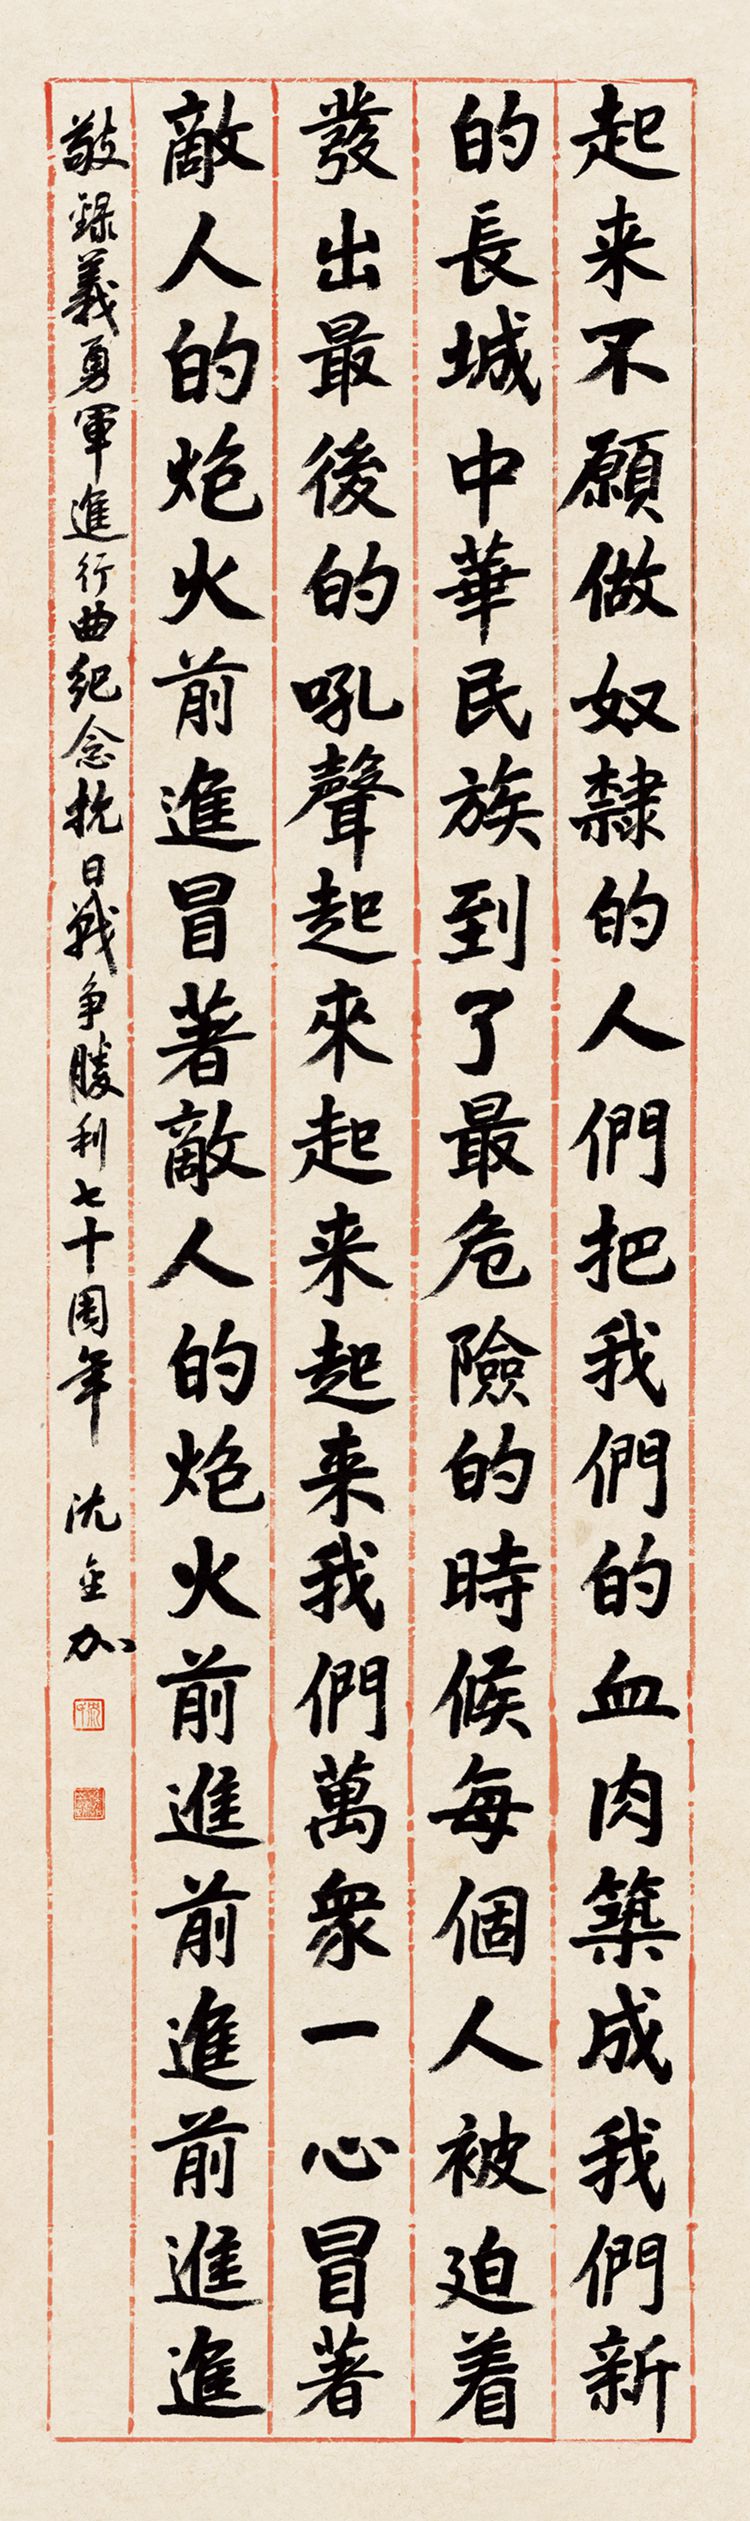 起来不願做奴隸的人們把我們的血肉築成我們新
的長城中華民族到了最危險的時候每個人被迫着
發出最後的吼聲起來起来起来我們萬衆一心冒著
敵人的炮火前進冒著敵人的炮火前進前進前進進
敬録義勇軍進行曲纪念抗日戰争勝利七十周年 沈金加